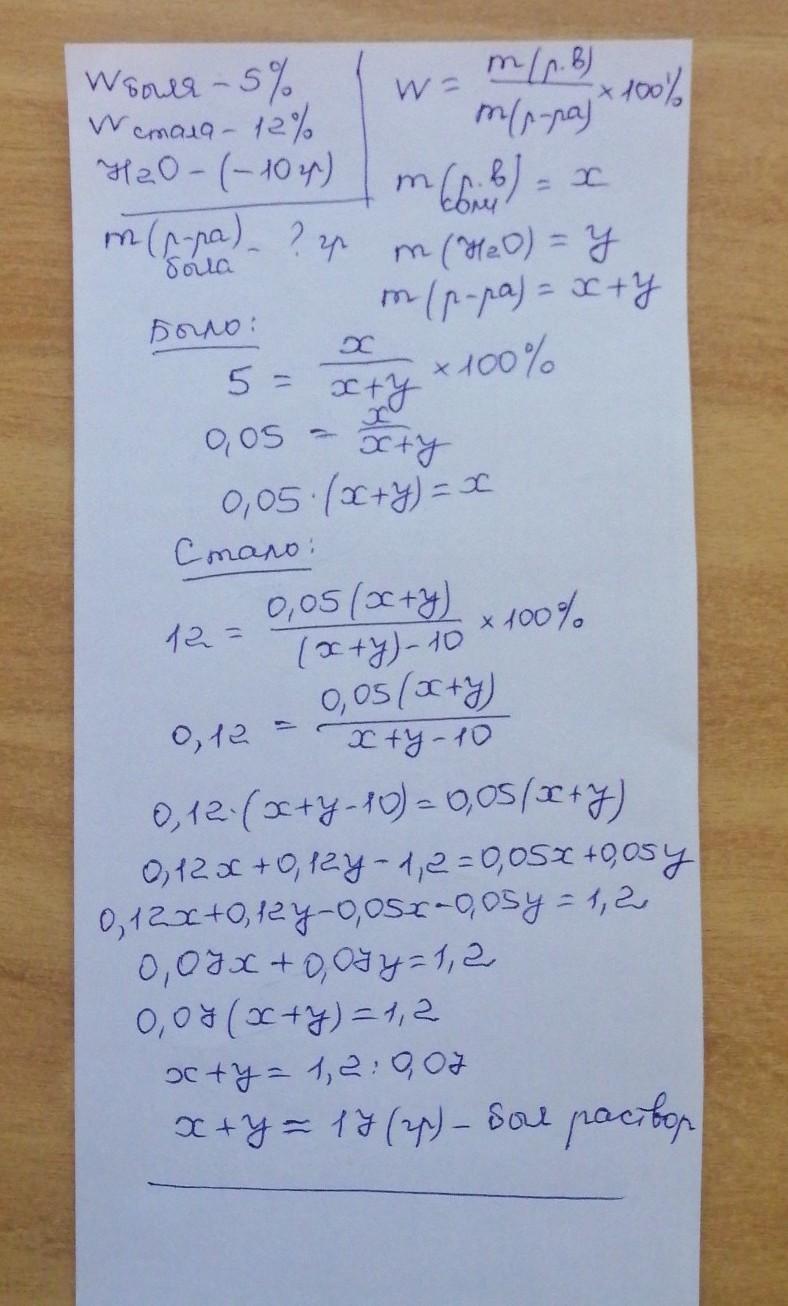 Wбыля - 5%
Wстала - 12%
H2O - (-10 гр)
m(р-ра) - ? гр
была
W = m(р.в)/m(р-ра) × 100%
m(р.в) = x
соли
m(H2O) = y
m(р-ра) = x+y
Было:
5 = x/(x+y) × 100%
0,05 = x/(x+y)
0,05·(x+y) = x
Стало:
12 = 0,05(x+y)/((x+y)-10) × 100%
0,12 = 0,05(x+y)/(x+y-10)
0,12·(x+y-10) = 0,05(x+y)
0,12x+0,12y-1,2=0,05x+0,05y
0,12x+0,12y-0,05x-0,05y=1,2
0,07x+0,07y=1,2
0,07(x+y)=1,2
x+y= 1,2:0,07
x+y = 17(гр) - был раствор